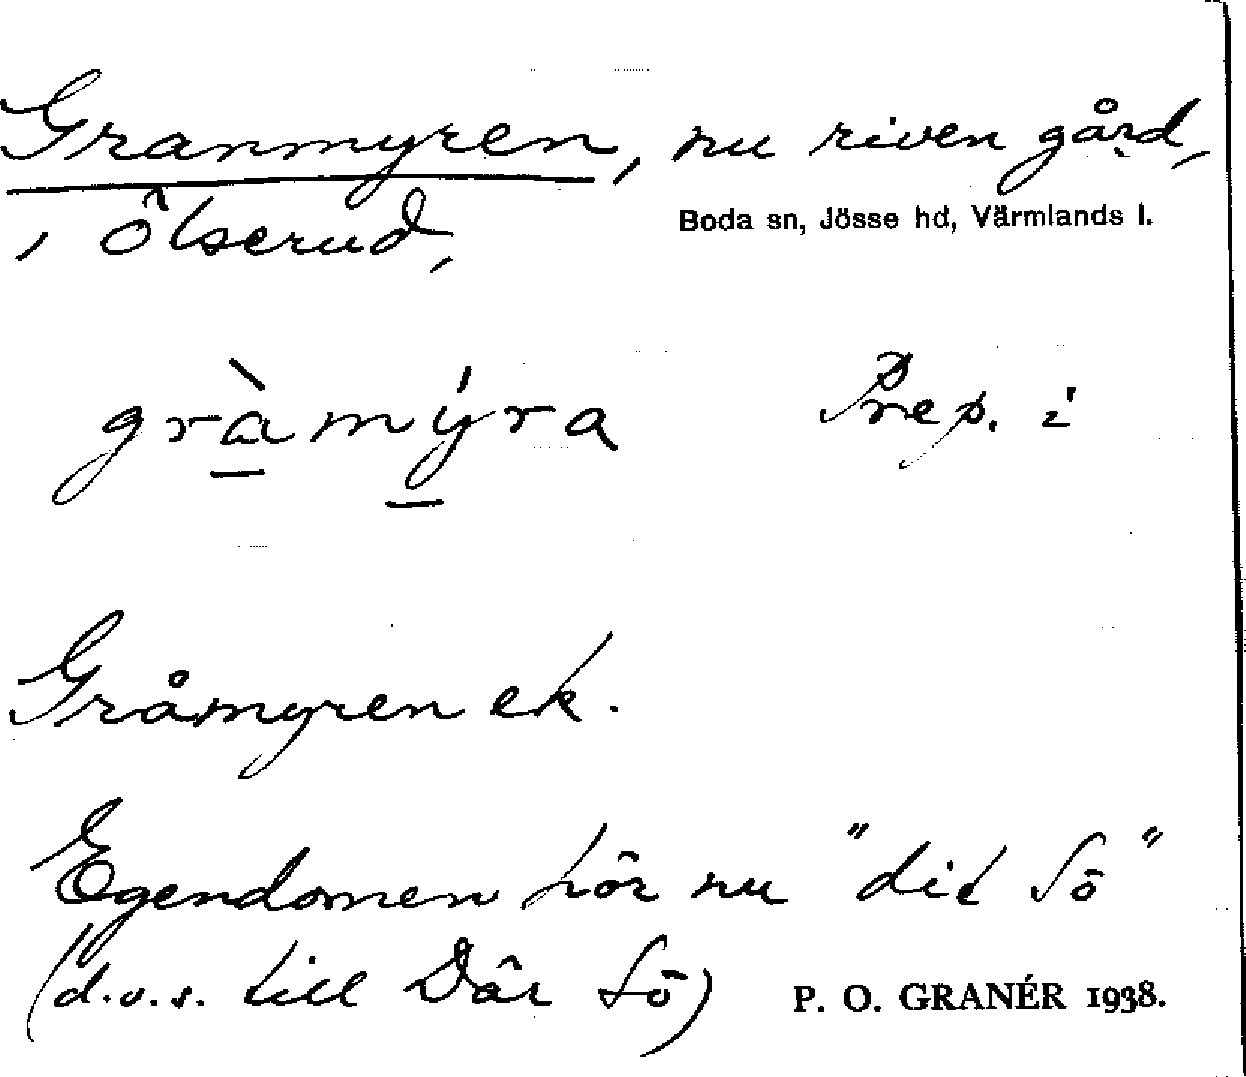 Granmyren, nu riven gård,
i Ölserud,
Boda sn, Jösse hd, Värmlands l.
gràmýra Prep. i
Gråmyren ek.
Egendomen hör nu "dit Sö"
(d.v.s. till Där Sö)
P. O. GRANÉR 1938.